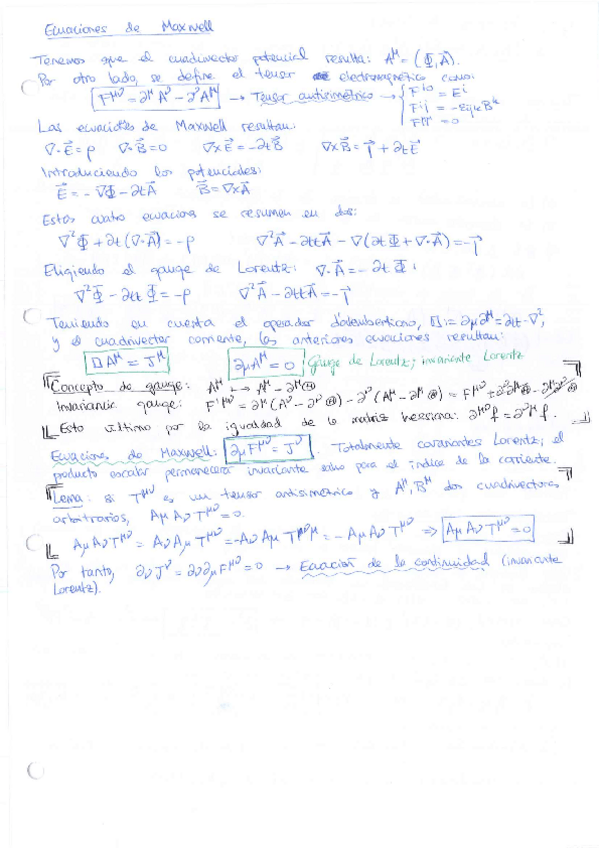 Ecuaciones de Maxwell
Tenemos que el cuadrivector potencial resulta: A^μ = (Φ, A⃗).
Por otro lado, se define el tensor electromagnético como:
F^μν = ∂^μ A^ν − ∂^ν A^μ → Tensor antisimétrico → { F^i0 = E^i
F^ij = −ε_ijk B^k
F^μμ = 0
Las ecuaciones de Maxwell resultan:
∇·E⃗ = ρ   ∇·B⃗ = 0   ∇×E⃗ = −∂t B⃗   ∇×B⃗ = j⃗ + ∂t E⃗
Introduciendo los potenciales:
E⃗ = −∇Φ − ∂t A⃗   B⃗ = ∇×A⃗
Estas cuatro ecuaciones se resumen en dos:
∇²Φ + ∂t(∇·A⃗) = −ρ   ∇²A⃗ − ∂tt A⃗ − ∇(∂tΦ + ∇·A⃗) = −j⃗
Eligiendo el gauge de Lorentz: ∇·A⃗ = −∂tΦ:
∇²Φ − ∂ttΦ = −ρ   ∇²A⃗ − ∂tt A⃗ = −j⃗
Teniendo en cuenta el operador d'alembertiano, □ := ∂μ∂^μ = ∂tt − ∇²,
y el cuadrivector corriente, las anteriores ecuaciones resultan:
□A^μ = J^μ   ∂μ A^μ = 0   Gauge de Lorentz; invariante Lorentz
Concepto de gauge: A^μ ↦ A^μ − ∂^μ Θ
Invariancia gauge: F'^μν = ∂^μ(A^ν − ∂^ν Θ) − ∂^ν(A^μ − ∂^μ Θ) = F^μν + ∂^ν∂^μ Θ − ∂^μ∂^ν Θ
Esto último por la igualdad de la matriz hessiana: ∂^μν f = ∂^νμ f.
Ecuaciones de Maxwell: ∂μ F^μν = J^ν. Totalmente covariantes Lorentz; el
producto escalar permanecerá invariante salvo para el índice de la corriente.
Lema: si T^μν es un tensor antisimétrico y A^μ, B^μ dos cuadrivectores
arbitrarios, Aμ Aν T^μν = 0.
Aμ Aν T^μν = Aν Aμ T^μν = −Aν Aμ T^νμ = −Aμ Aν T^μν ⇒ Aμ Aν T^μν = 0
Por tanto, ∂ν J^ν = ∂ν ∂μ F^μν = 0 → Ecuación de la continuidad (invariante
Lorentz).